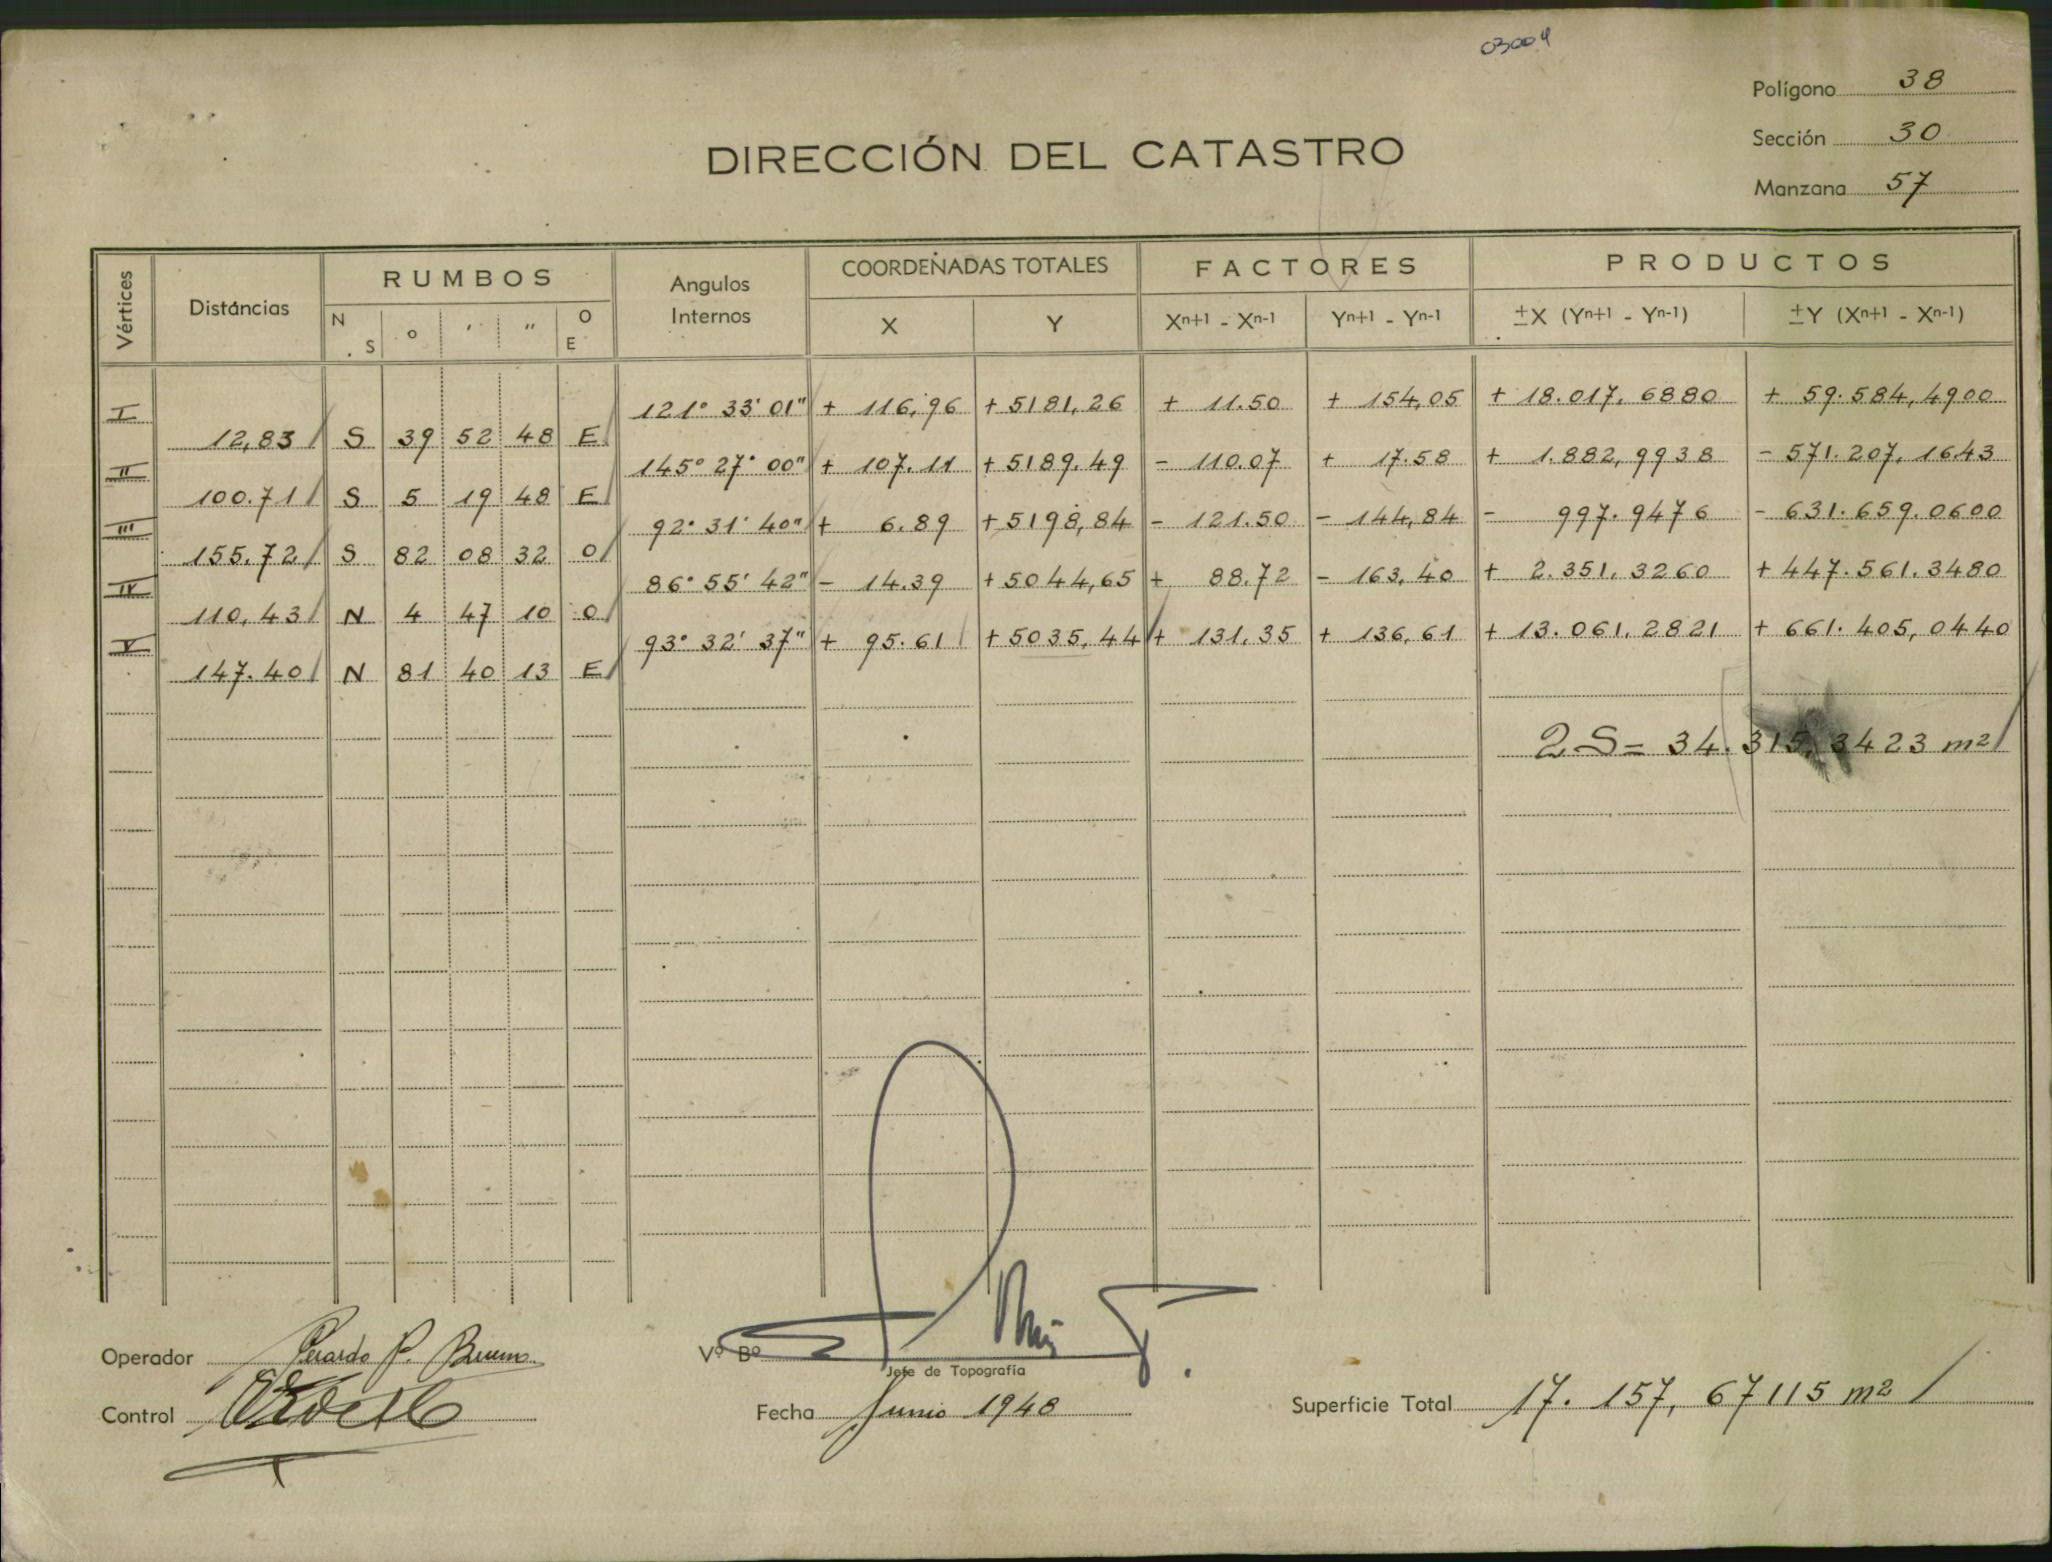 03004
Polígono 38
Sección 30
Manzana 57
DIRECCIÓN DEL CATASTRO
Vértices Distáncias RUMBOS Angulos Internos COORDEÑADAS TOTALES FACTORES PRODUCTOS
N S ° ' " O E X Y Xⁿ⁺¹ - Xⁿ⁻¹ Yⁿ⁺¹ - Yⁿ⁻¹ ±X (Yⁿ⁺¹ - Yⁿ⁻¹) ±Y (Xⁿ⁺¹ - Xⁿ⁻¹)
I 121° 33' 01" + 116,96 + 5181,26 + 11.50 + 154,05 + 18.017,6880 + 59.584,4900
12,83 S 39 52 48 E
II 145° 27' 00" + 107.11 + 5189.49 - 110.07 + 17.58 + 1.882,9938 - 571.207,1643
100.71 S 5 19 48 E
III 92° 31' 40" + 6.89 + 5198,84 - 121.50 - 144,84 - 997.9476 - 631.659.0600
155.72 S 82 08 32 O
IV 86° 55' 42" - 14.39 + 5044,65 + 88.72 - 163,40 + 2.351,3260 + 447.561.3480
110,43 N 4 47 10 O
V 93° 32' 37" + 95.61 + 5035,44 + 131,35 + 136,61 + 13.061,2821 + 661.405,0440
147.40 N 81 40 13 E
2S = 34.315,3423 m²
Operador Gerardo P. Bruno
Vº Bº
Jefe de Topografía
Control
Fecha Junio 1948
Superficie Total 17.157,67115 m²